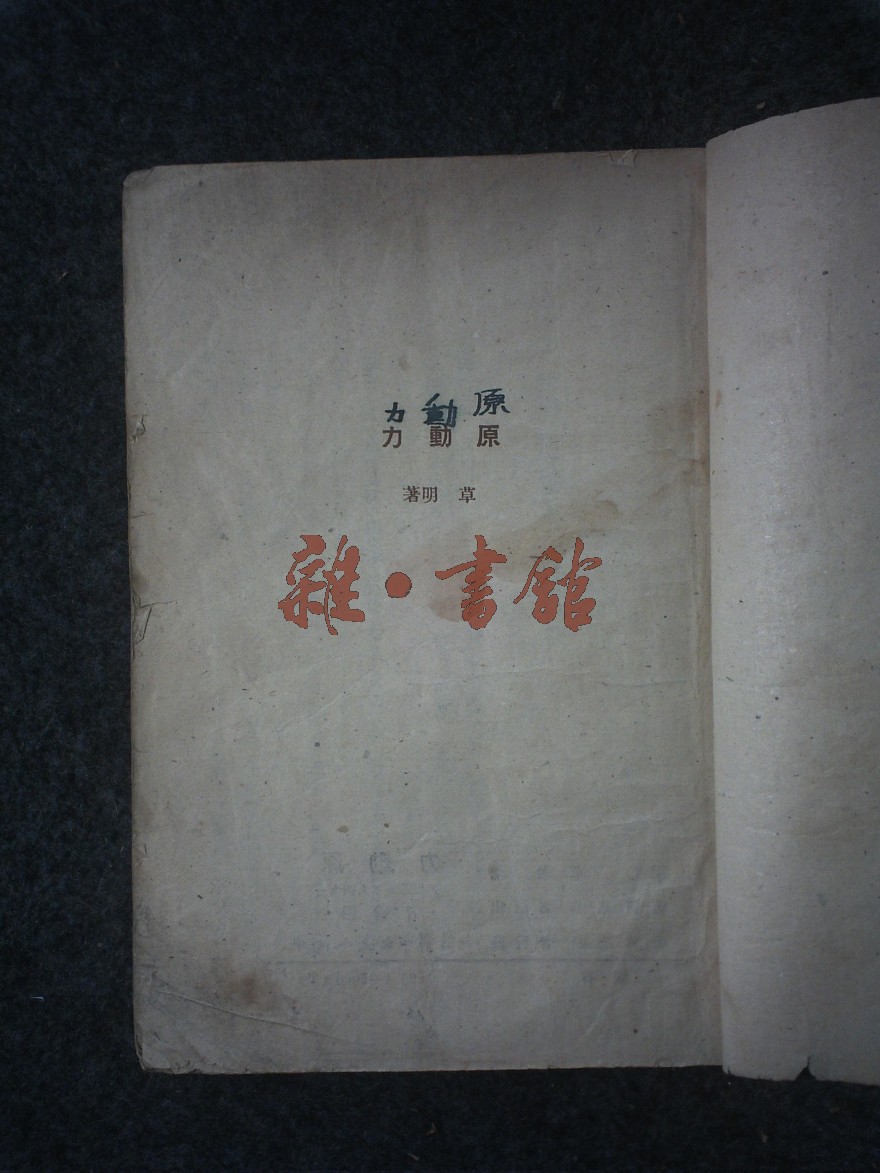 原動力
原動力
草明著
雜·書館